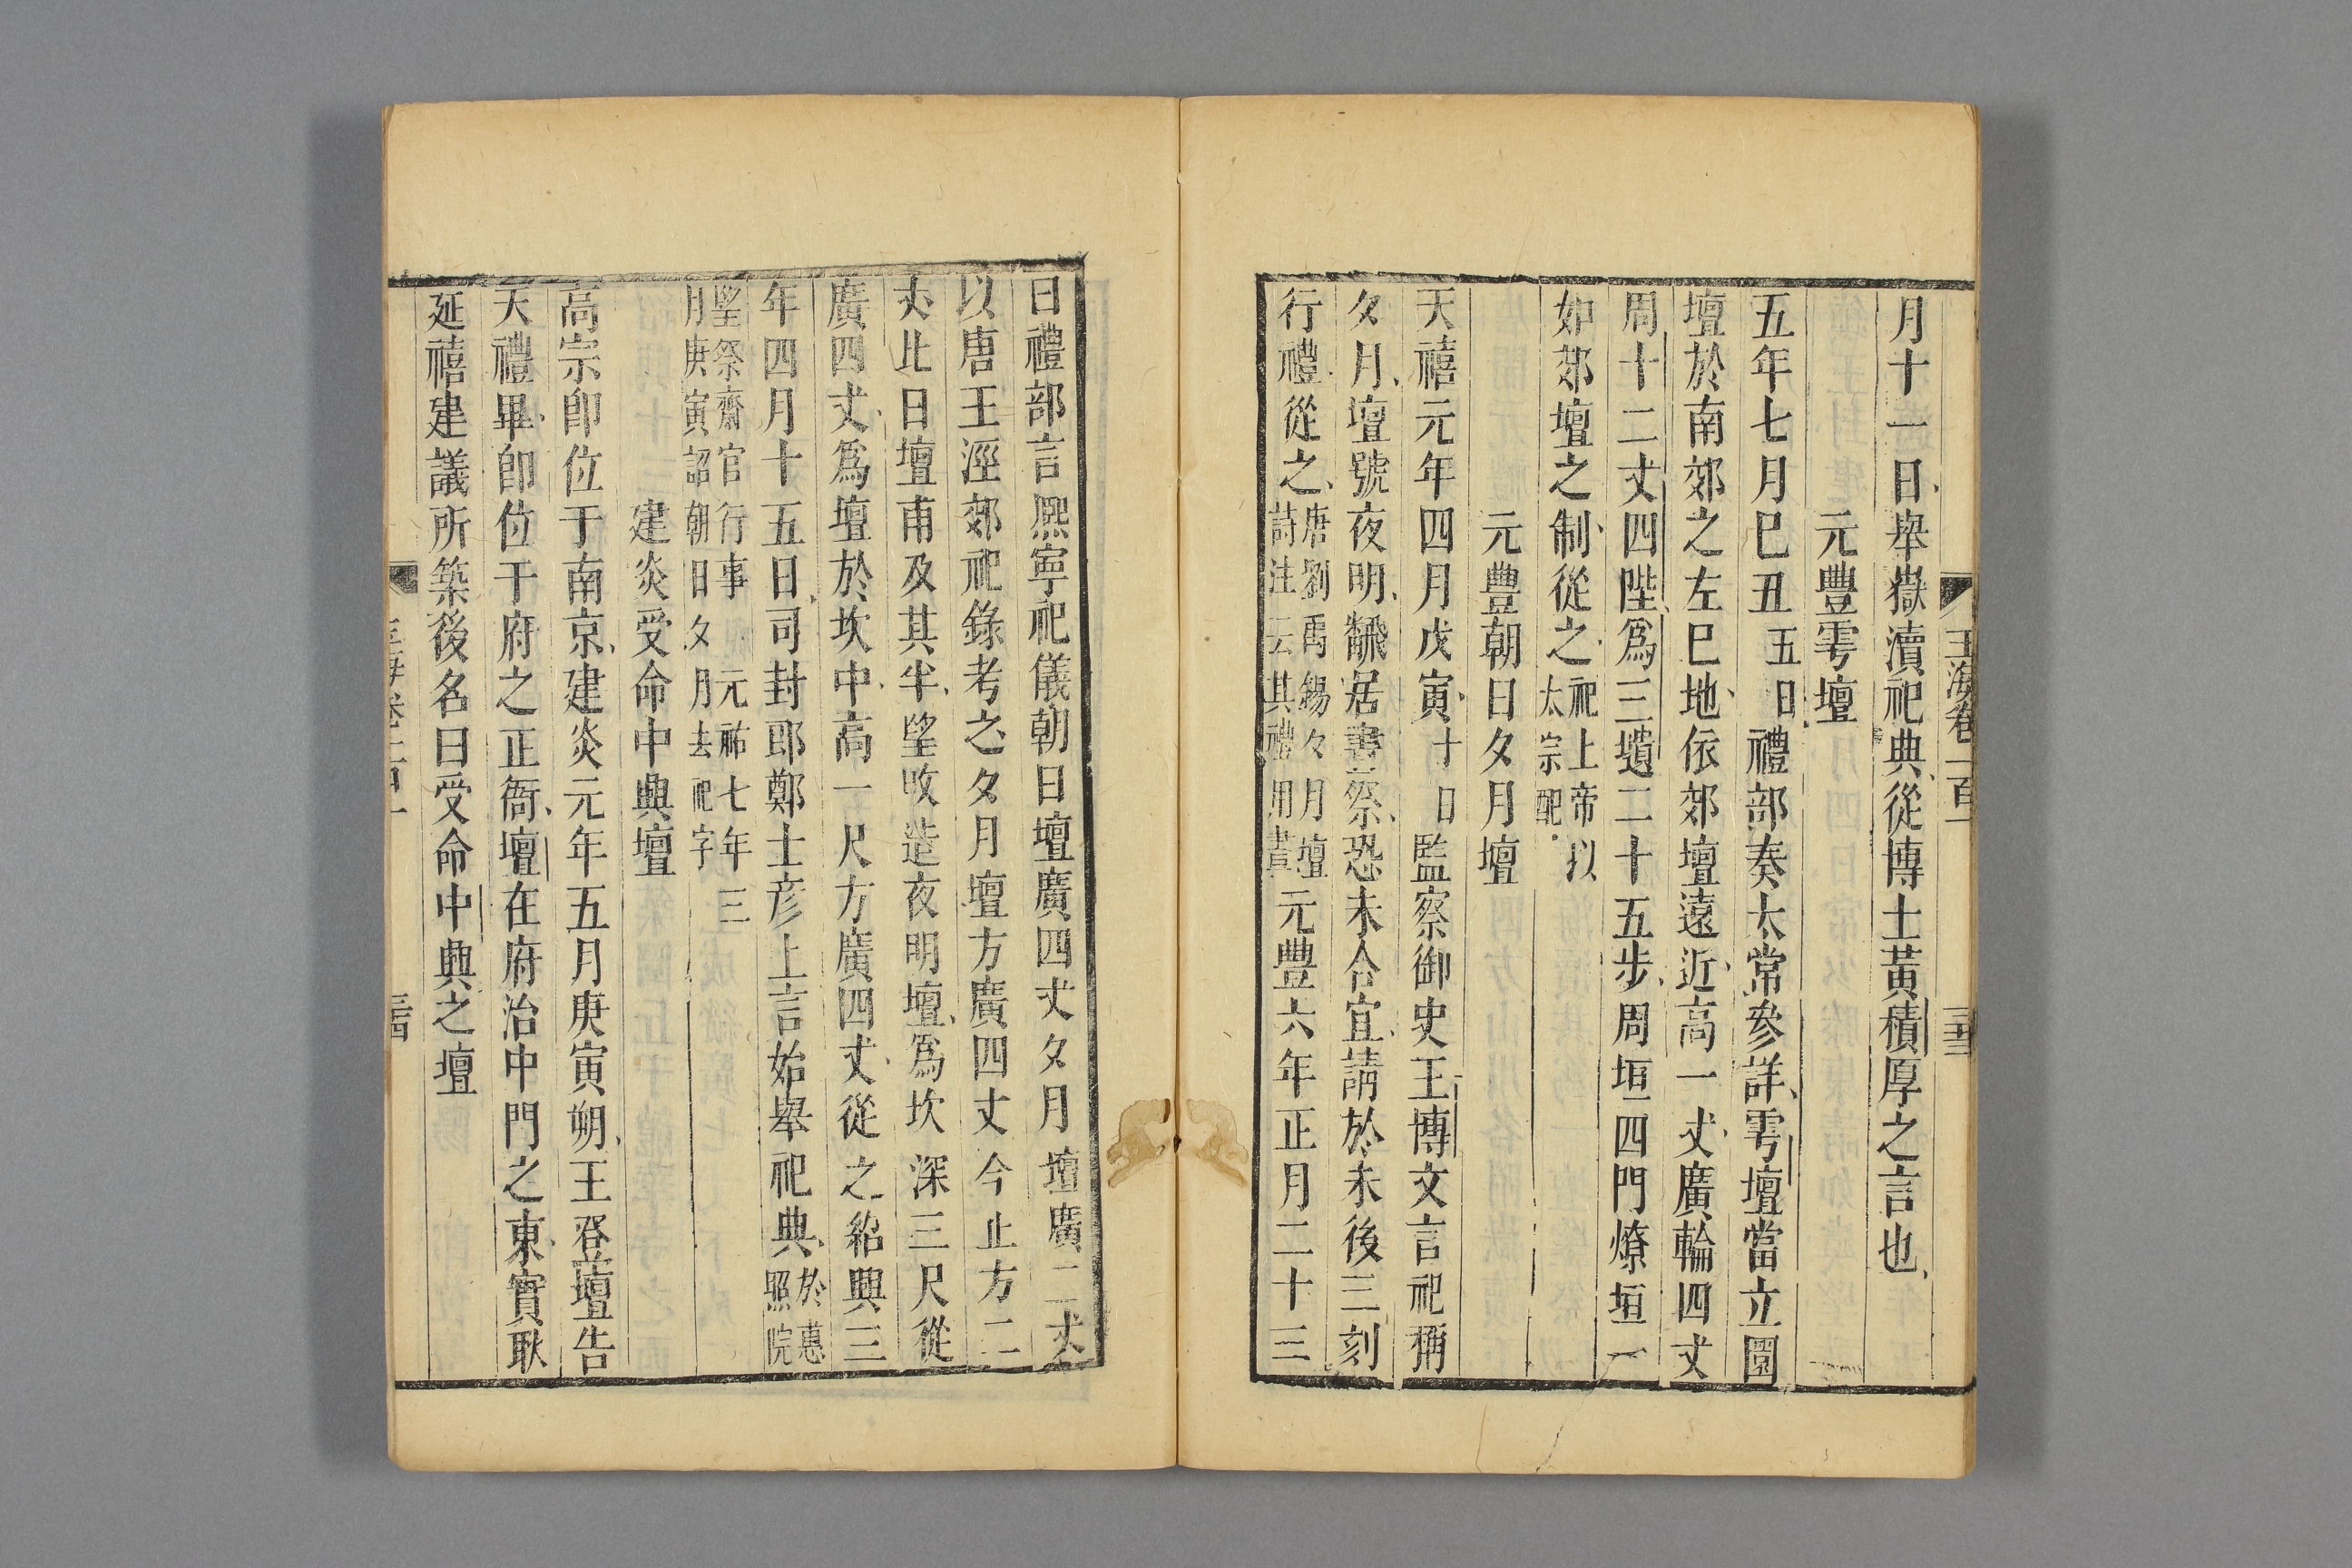 玉海卷一百一 三十三
月十一日舉嶽瀆祀典從博士黃積厚之言也
元豐雩壇
五年七月巳丑五日禮部奏太常參詳雩壇當立圜
壇於南郊之左巳地依郊壇遠近高一丈廣輪四丈
周十二丈四陛爲三壝二十五步周垣四門燎垣一
如郊壇之制從之祀上帝以太宗配
元豐朝日夕月壇
天禧元年四月戊寅十日監察御史王博文言祀
夕月壇號夜明居書祭恐未合宜請於未後三刻
行禮從之唐劉禹錫夕月壇詩注云其禮用晝元豐六年正月二十三
日禮部言熙寧祀儀朝日壇廣四丈夕月壇廣二丈
以唐王涇郊祀錄考之夕月壇方廣四丈今止方二
丈比日壇甫及其半望改造夜明壇爲坎深三尺從
廣四丈爲壇於坎中高一尺方廣四丈從之紹興三
年四月十五日司封郎鄭士彥上言始舉祀典於惠照院
望祭齋官行事 元祐七年三月庚寅詔朝日夕月去祀字
建炎受命中興壇
高宗卽位于南京建炎元年五月庚寅朔王登壇告
天禮畢卽位于府之正衙壇在府治中門之東實耿
延禧建議所築後名曰受命中興之壇